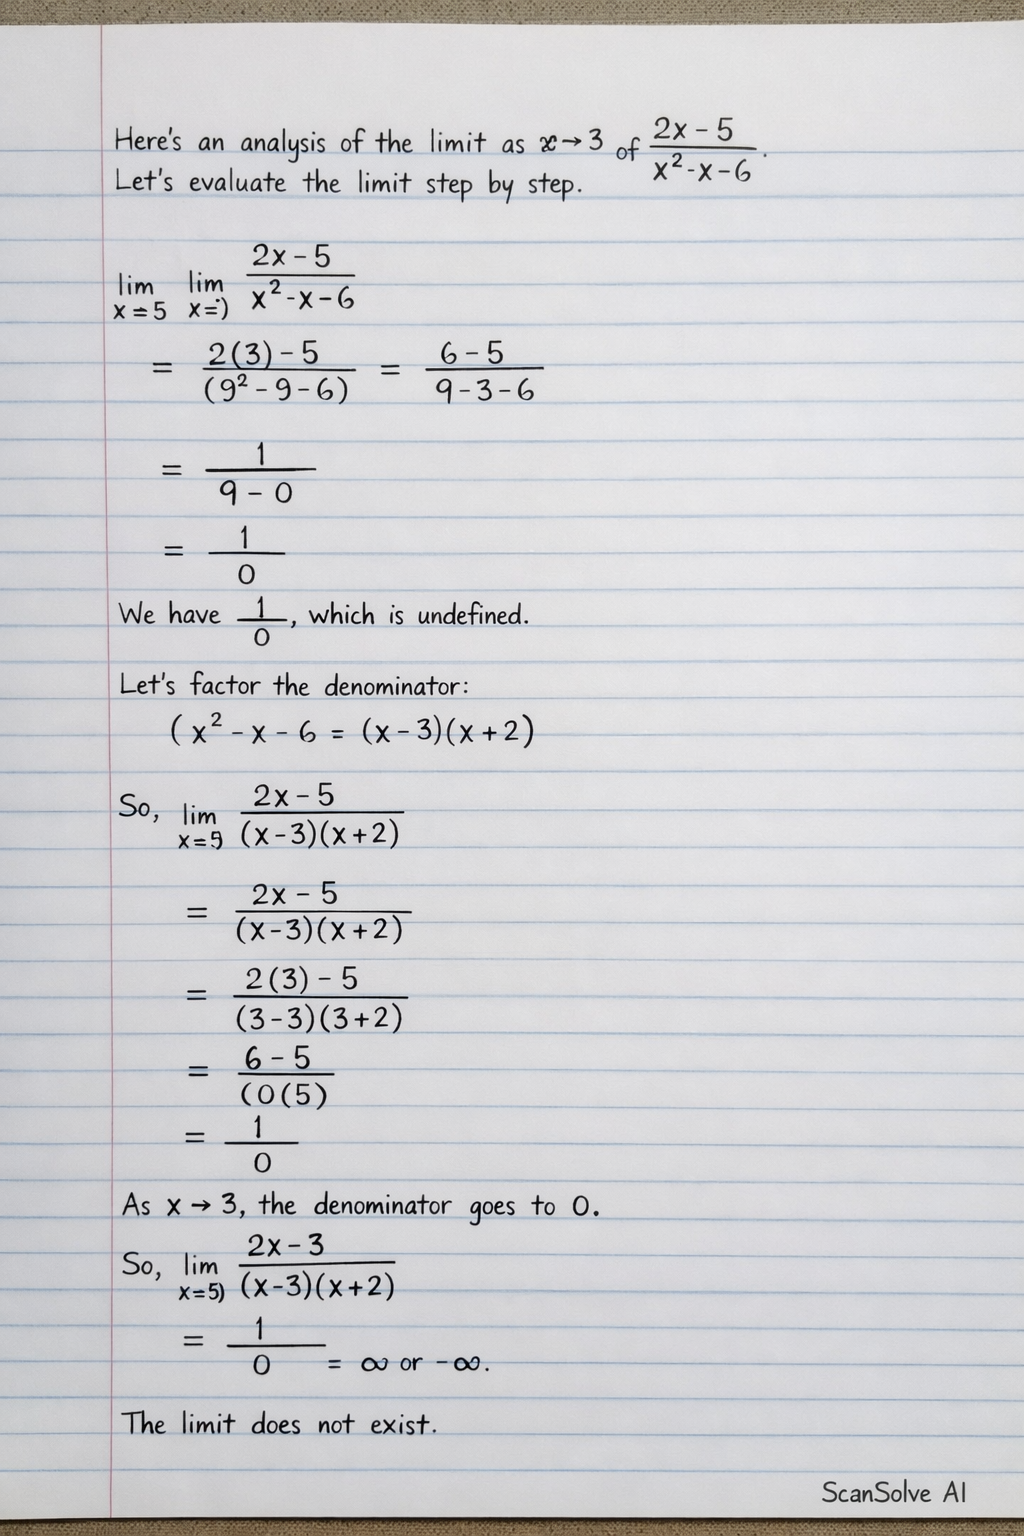 Here's an analysis of the limit as x→3 of (2x - 5)/(x² - x - 6).
Let's evaluate the limit step by step.
lim x=5 lim x=) (2x - 5)/(x² - x - 6)
= (2(3) - 5)/((9² - 9 - 6)) = (6 - 5)/(9 - 3 - 6)
= 1/(9 - 0)
= 1/0
We have 1/0, which is undefined.
Let's factor the denominator:
(x² - x - 6 = (x - 3)(x + 2)
So, lim x=9 (2x - 5)/((x - 3)(x + 2))
= (2x - 5)/((x - 3)(x + 2))
= (2(3) - 5)/((3 - 3)(3 + 2))
= (6 - 5)/((0(5))
= 1/0
As x → 3, the denominator goes to 0.
So, lim x=5) (2x - 3)/((x - 3)(x + 2))
= 1/0 = ∞ or -∞.
The limit does not exist.
ScanSolve AI